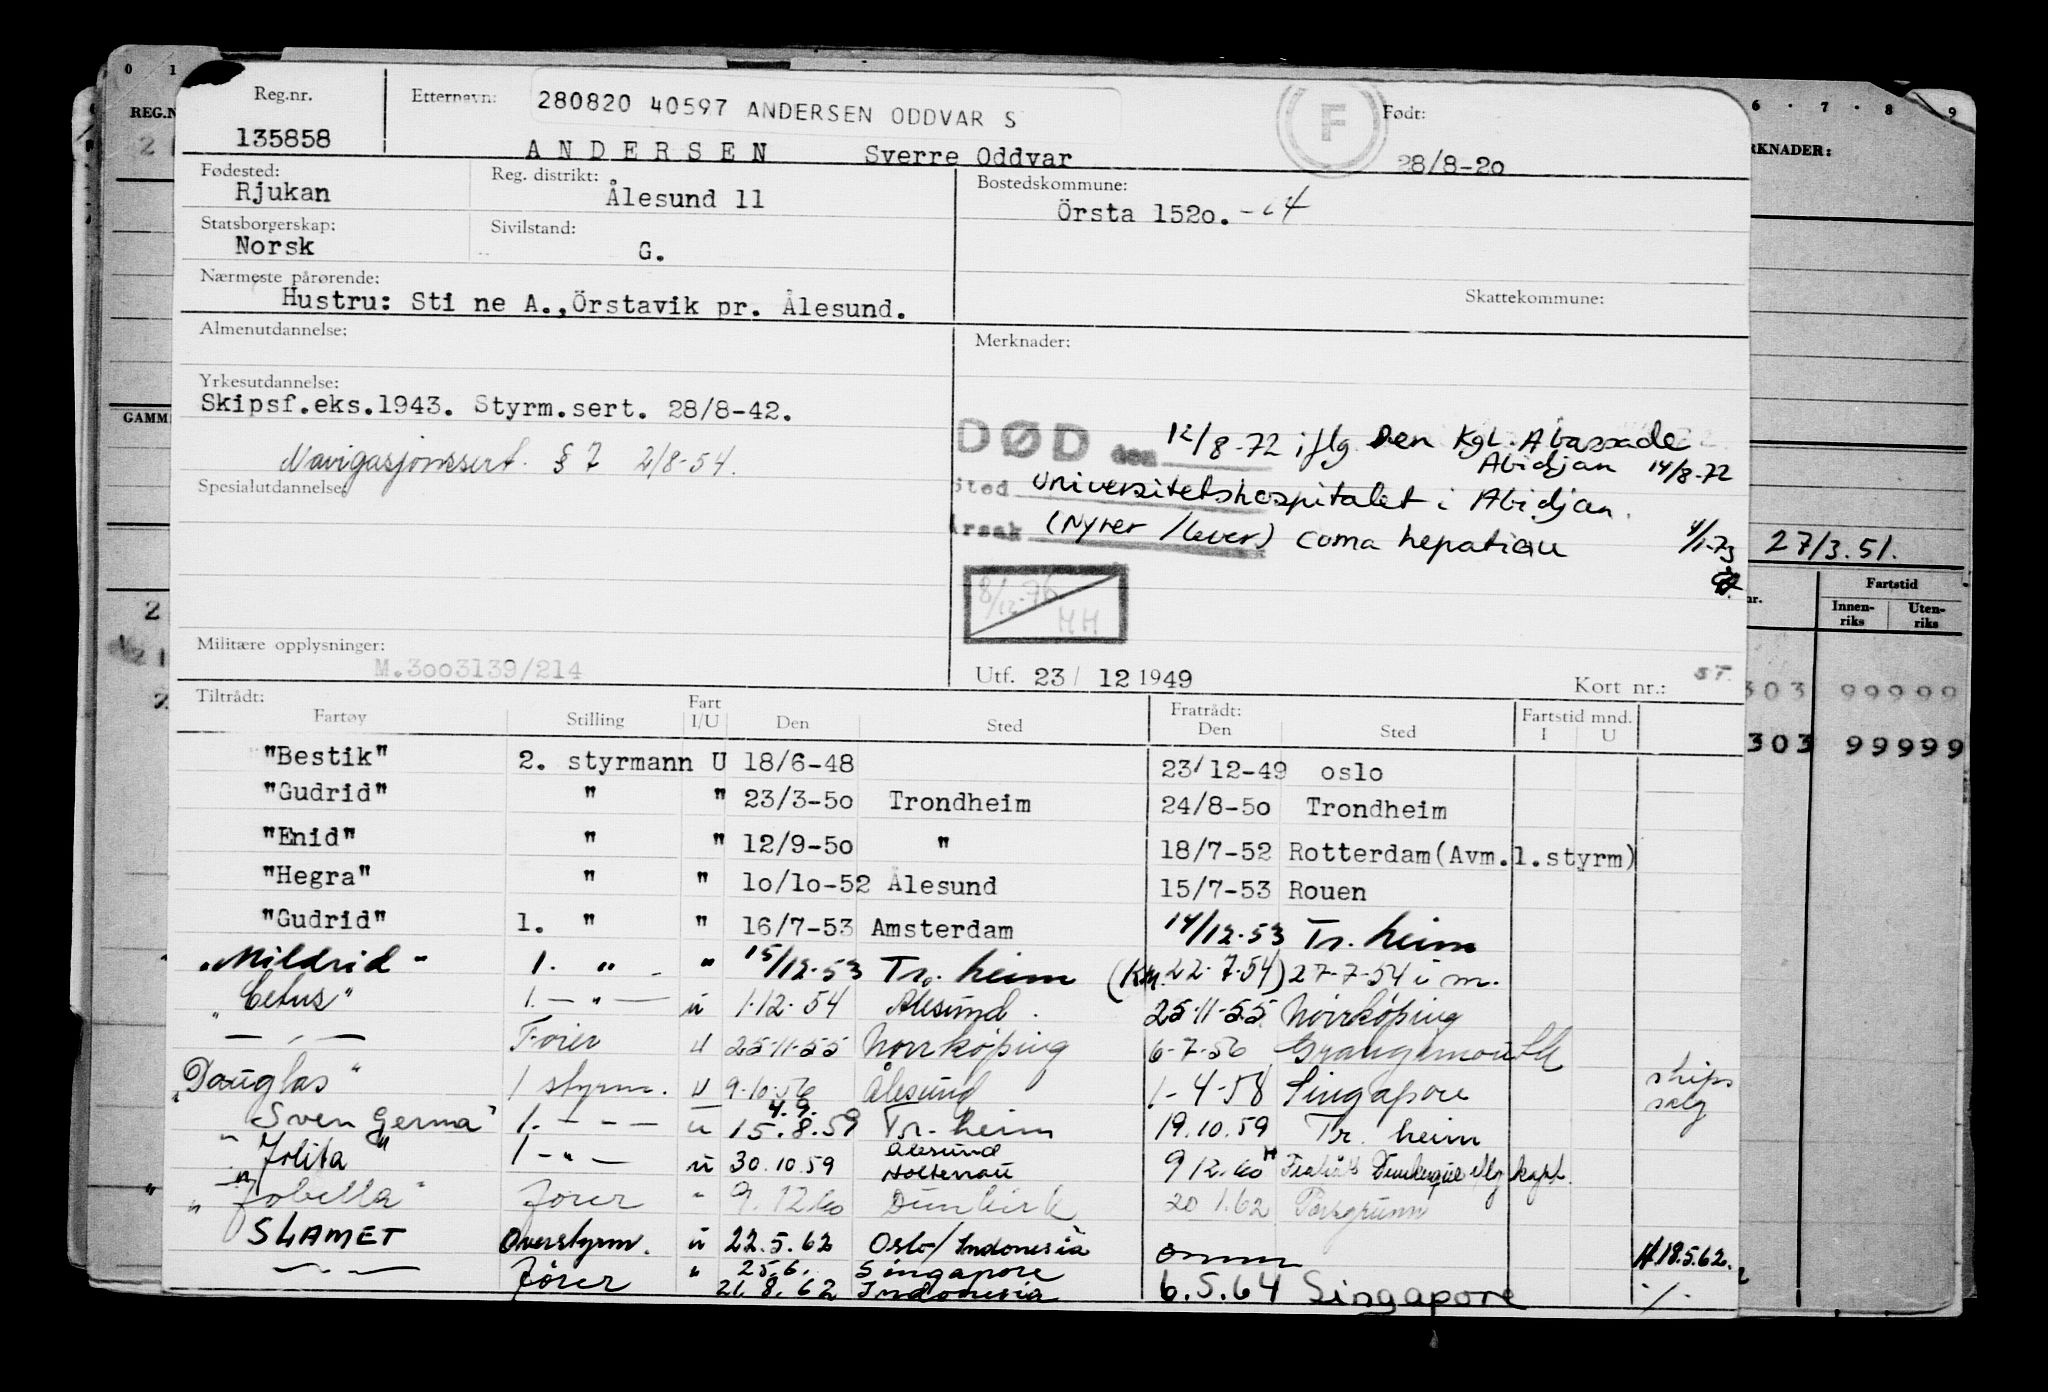 0 1
REG.N
Reg.nr.
135858
Etternavn:
280820 40597 ANDERSEN ODDVAR S
ANDERSEN Sverre Oddvar
F
Født:
28/8-20
6 · 7 · 8 · 9
RKNADER:
Fødested:
Rjukan
Reg. distrikt:
Ålesund 11
Bostedskommune:
Örsta 1520.
Statsborgerskap:
Norsk
Sivilstand:
G.
Nærmeste pårørende:
Hustru: Sti ne A.,Örstavik pr. Ålesund.
Skattekommune:
Almenutdannelse:
Merknader:
Yrkesutdannelse:
Skipsf.eks.1943. Styrm.sert. 28/8-42.
GAMM
Navigasjonssert. § 7 2/8-54.
DØD den 12/8-72 iflg Den Kgl. Abassade
Abidjan 14/8-72
Spesialutdannelse:
Sted Universitetshospitalet i Abidjan.
Årsak (Nyrer/lever) coma hepaticu
4/1-73
27/3.51.
8/12-76
HH
nr.
Fartstid
Innen-riks Uten-riks
Militære opplysninger:
M.3003139/214
Utf. 23/ 12 1949
Kort nr.:
303 99999
303 99999
Tiltrådt:
Fartøy Stilling Fart I/U Den Sted Fratrådt: Den Sted Fartstid mnd. I U
"Bestik" 2. styrmann U 18/6-48 23/12-49 oslo
"Gudrid" " " 23/3-50 Trondheim 24/8-50 Trondheim
"Enid" " " 12/9-50 " 18/7-52 Rotterdam(Avm.1.styrm)
"Hegra" " " 10/10-52 Ålesund 15/7-53 Rouen
"Gudrid" 1. " " 16/7-53 Amsterdam 14/12.53 Tr. heim
"Mildrid" 1. " " 15/12.53 Tr. heim (Km. 22.7.54) 27-7-54 i m.
"Cetus" 1. — " — u 1.12.54 Ålesund. 25.11.55 Norrköping
— " — Fører U 25.11.55 Norrköping 6-7-56 Grangemouth
"Douglas" 1 styrm. U 9.10.56 Ålesund 1-4-58 Singapore skips salg
"Sven Germa" 1. - - - u 4.9. 15.8.59 Tr. heim 19.10.59 Tr. heim
"Jolita" 1 - " - u 30.10.59 Ålesund Holtenau 9 12.60 Fratrådt Dunkerque kapt.
"Jobella" Fører " 9.12.60 Dunkirk 20 1.62 Porsgrunn
SLAMET Overstyrm. u 22.5.62 Oslo/Indonesia omm H 18.5.62.
— " — Fører " 25.6. Singapore
21.8.62 Indonesia 6.5.64 Singapore